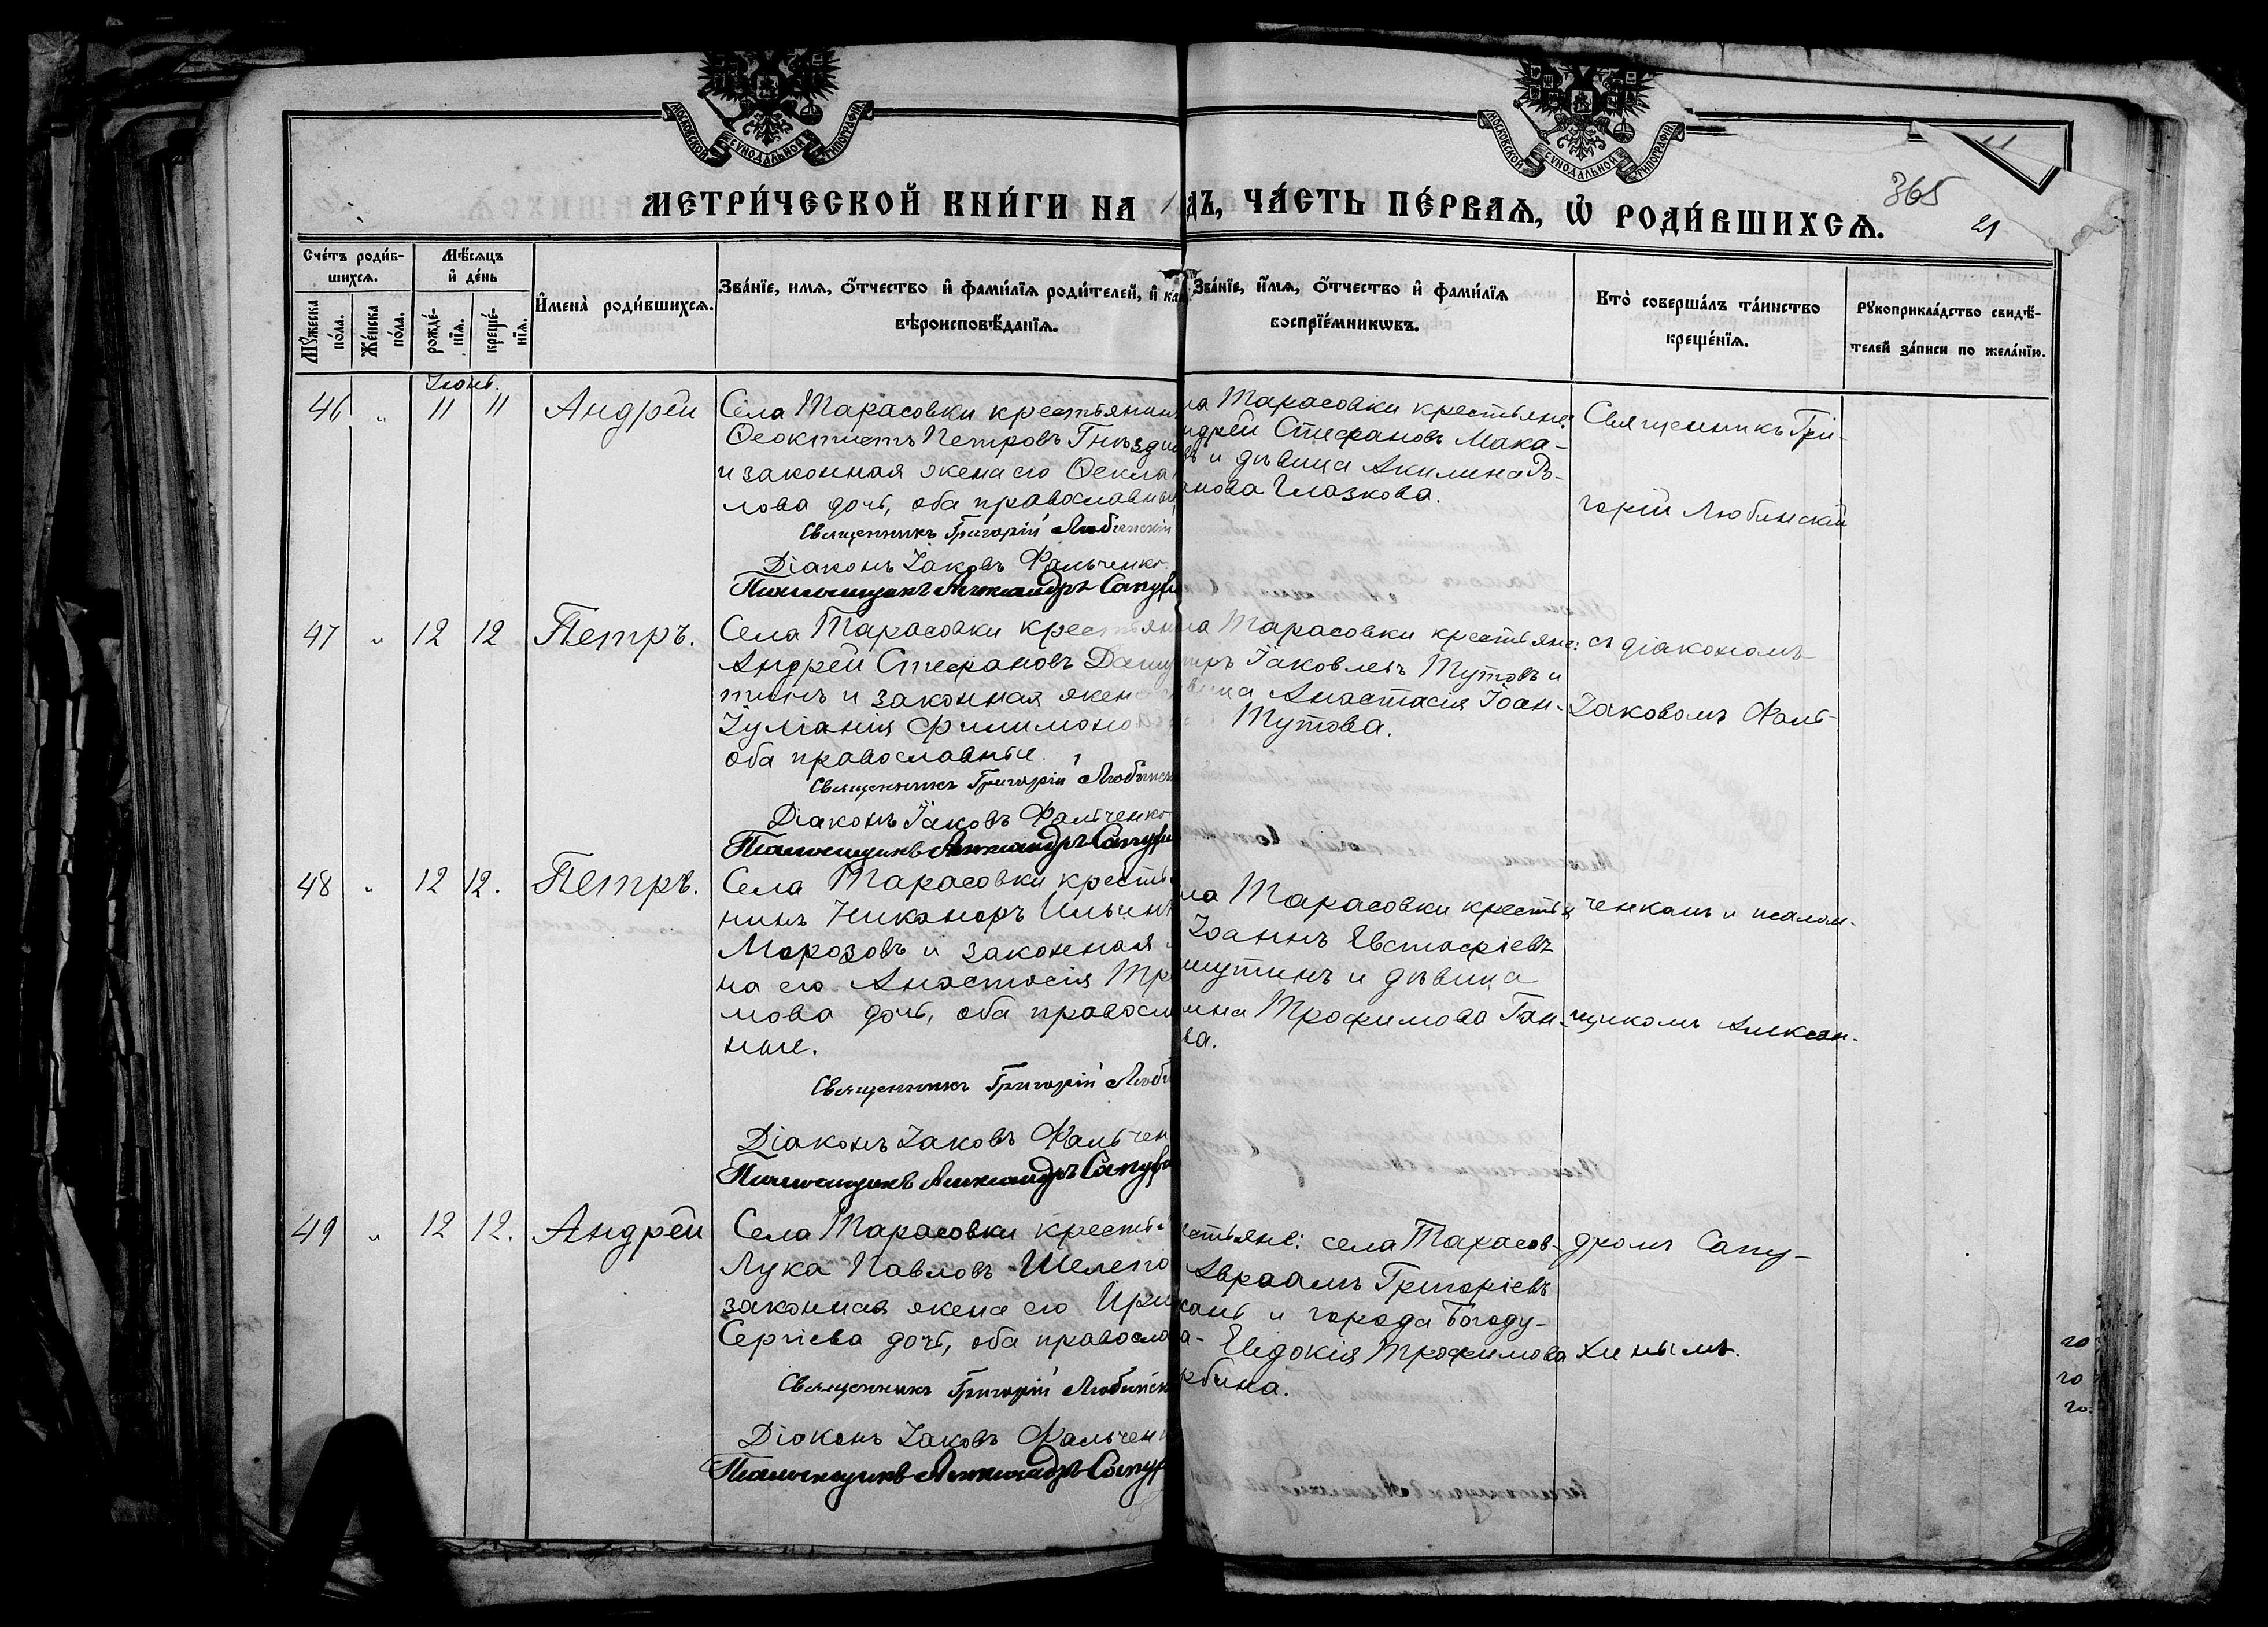 МОСКОВСКОЙ СѴНОДАЛЬНОЙ ТИПОГРАФІИ
МОСКОВСКОЙ СѴНОДАЛЬНОЙ ТИПОГРАФІИ
МЕТРИ́ЧЕСКОЙ КНИ́ГИ НА 1
ДЪ, ЧА́СТЬ ПЕ́РВАѦ, Ѡ҆ РОДИ́ВШИХСѦ.
365
21
Сче́тъ роди́в-
шихсѧ.
Мꙋ́жеска по́ла.
Же́нска по́ла.
Мѣ́сѧцъ
и҆ де́нь
рожде́-
нїѧ.
креще́-
нїѧ.
И҆мена̀ роди́вшихсѧ.
Зва́нїе, имѧ, ѻ҆́тчество и҆ фами́лїѧ роди́телей, и҆ как
вѣроисповѣ́данїѧ.
Зва́нїе, и҆́мѧ, ѻ҆́тчество и҆ фами́лїѧ
воспрїе́мникѡвъ.
Кто̀ соверша́лъ та́инство
креще́нїѧ.
Рꙋкоприкла́дство свидѣ́-
телей за́писи по жела́нїю.
Іюнь.
46 " 11 11 Андрей
Села Тарасовки крестьянин
Феоктистъ Петровъ Гнѣзди
и законная жена его Фекла
лова дочь, оба православны
Священникъ Григорій Любинскій
Діаконъ Іаковъ Фальченко
Псаломщикъ Александръ Сапух
ла Тарасовки крестьяне:
ндрей Стефановъ Мака-
въ и дѣвица Акилина Ро-
анова Глазкова.
Священникъ Гри-
горій Любинскій
47 " 12 12 Петръ.
Села Тарасовки крестьян
Андрей Стефановъ Дашу
тинъ и законная жена
Іуліанія Филимоно
оба православные.
Священникъ Григорій Любинск
Діаконъ Іаковъ Фальченко
Псаломщикъ Александръ Сапухи
ла Тарасовки крестьяне:
тръ Іаковлевъ Тутовъ и
вица Анастасія Іоан-
Тутова.
съ діакономъ
Іаковомъ Фаль-
48 " 12 12. Петръ.
Села Тарасовки кресть
нинъ Никаноръ Ильинъ
Морозовъ и законная
на его Анастасія Тр
мова дочь, оба правосл
ные.
Священникъ Григорій Люби
Діаконъ Іаковъ Фальчен
Псаломщикъ Александръ Сапухи
ла Тарасовки кресть
Іоаннъ Евстафіевъ
шутинъ и дѣвица
ина Трофимова Ган-
ва.
ченкомъ и псалом-
щикомъ Алексан-
49 " 12 12. Андрей
Села Тарасовки кресть
Лука Павловъ Шелепо
законная жена его Ири
Сергіева дочь, оба правосла
Священникъ Григорій Любинск
Діаконъ Іаковъ Фальчен
Псаломщикъ Александръ Сапух
естьяне: села Тарасов-
Авраамъ Григоріевъ
кань и города Богоду-
а- Евдокія Трофимова
рбина.
дромъ Сапу-
хинымъ.
го
го
го